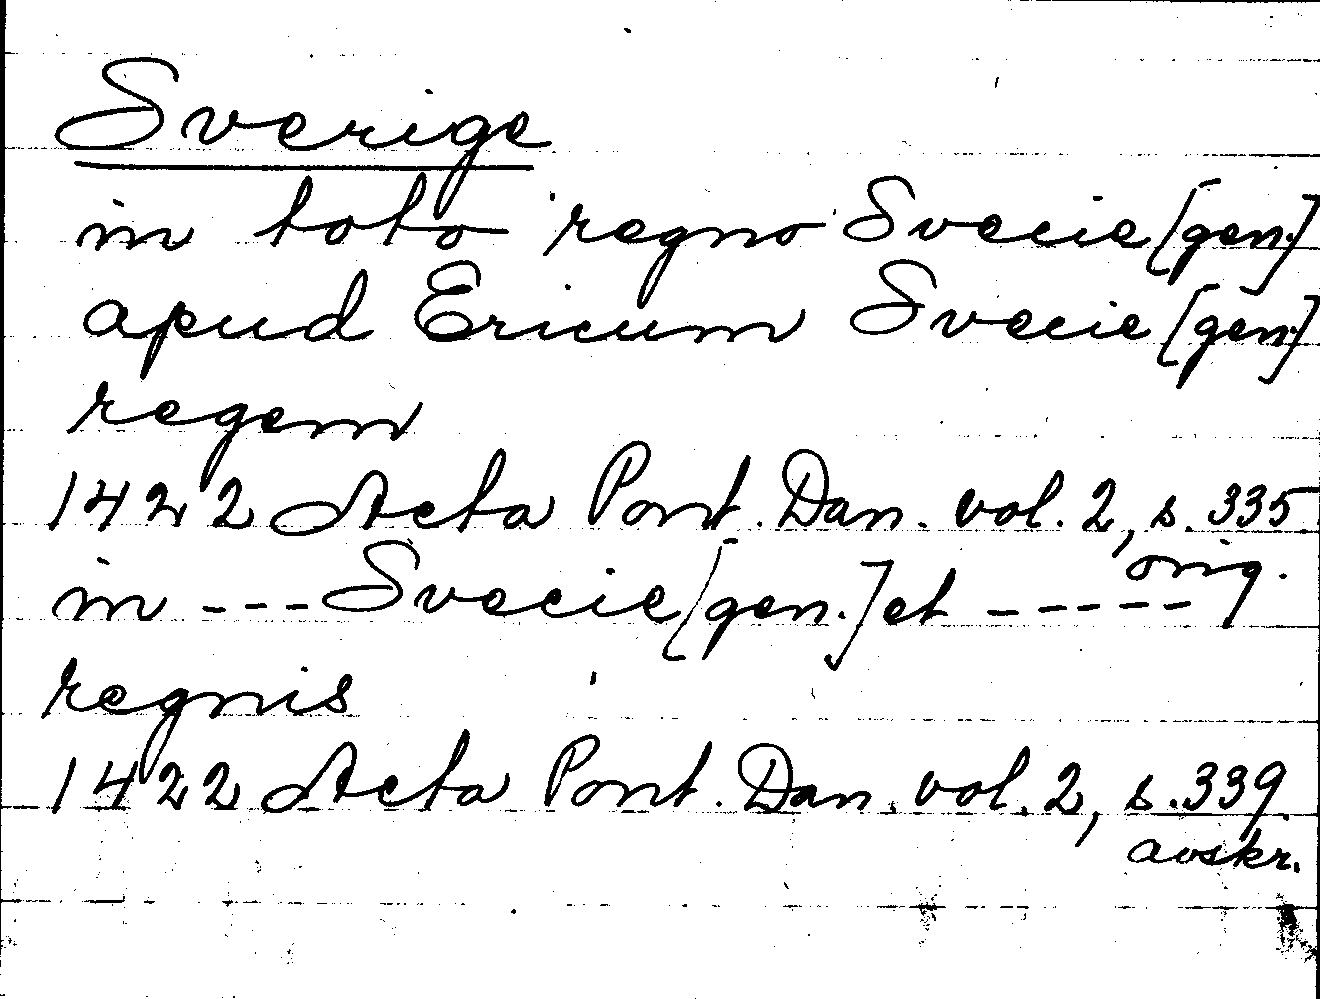 Sverige
in toto regno Svecie [gen.]
apud Ericum Svecie [gen.]
regem
1422 Acta Pont. Dan. vol. 2, s. 335.
orig.
in --- Svecie [gen.] et -----
regnis
1422 Acta Pont. Dan. vol. 2, s. 339.
avskr.